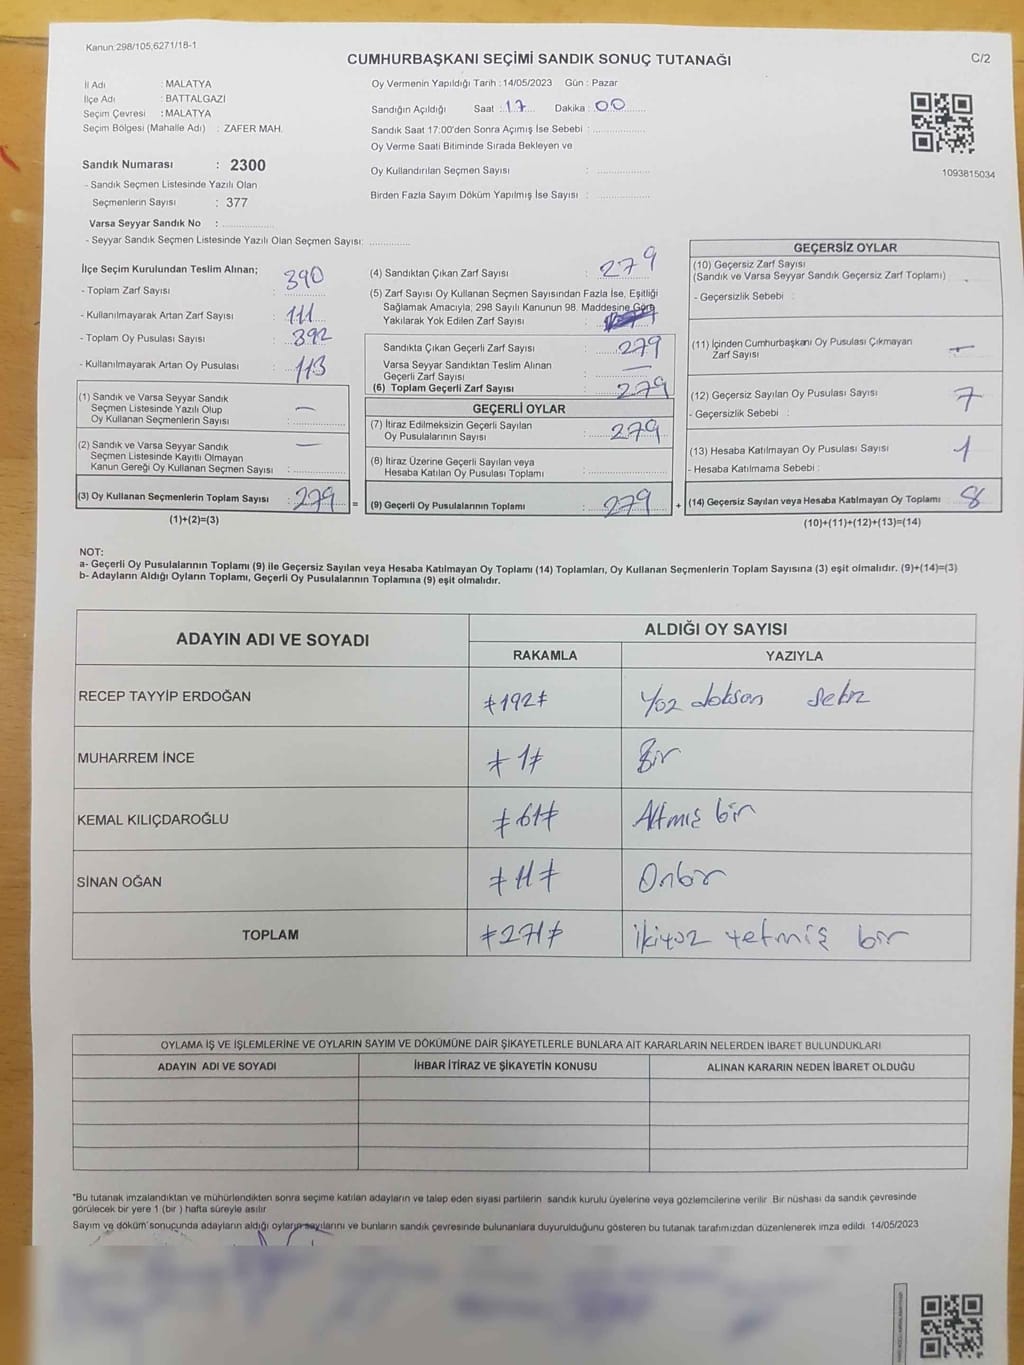 Kanun:298/105,6271/18-1
CUMHURBAŞKANI SEÇİMİ SANDIK SONUÇ TUTANAĞI
C/2
İl Adı : MALATYA
İlçe Adı : BATTALGAZİ
Seçim Çevresi : MALATYA
Seçim Bölgesi (Mahalle Adı) : ZAFER MAH.
Oy Vermenin Yapıldığı Tarih : 14/05/2023 Gün : Pazar
Sandığın Açıldığı Saat : 17 Dakika : 00
Sandık Saat 17:00'den Sonra Açımış İse Sebebi :
Oy Verme Saati Bitiminde Sırada Bekleyen ve
Oy Kullandırılan Seçmen Sayısı :
Birden Fazla Sayım Döküm Yapılmış İse Sayısı :
1093815034
Sandık Numarası : 2300
- Sandık Seçmen Listesinde Yazılı Olan
Seçmenlerin Sayısı : 377
Varsa Seyyar Sandık No :
- Seyyar Sandık Seçmen Listesinde Yazılı Olan Seçmen Sayısı:
İlçe Seçim Kurulundan Teslim Alınan;
- Toplam Zarf Sayısı : 390
- Kullanılmayarak Artan Zarf Sayısı : 111
- Toplam Oy Pusulası Sayısı : 392
- Kullanılmayarak Artan Oy Pusulası : 113
(1) Sandık ve Varsa Seyyar Sandık
Seçmen Listesinde Yazılı Olup
Oy Kullanan Seçmenlerin Sayısı : —
(2) Sandık ve Varsa Seyyar Sandık
Seçmen Listesinde Kayıtlı Olmayan
Kanun Gereği Oy Kullanan Seçmen Sayısı : —
(3) Oy Kullanan Seçmenlerin Toplam Sayısı : 279 =
(1)+(2)=(3)
(4) Sandıktan Çıkan Zarf Sayısı : 279
(5) Zarf Sayısı Oy Kullanan Seçmen Sayısından Fazla İse, Eşitliği
Sağlamak Amacıyla; 298 Sayılı Kanunun 98. Maddesine Göre
Yakılarak Yok Edilen Zarf Sayısı :
Sandıkta Çıkan Geçerli Zarf Sayısı : 279
Varsa Seyyar Sandıktan Teslim Alınan
Geçerli Zarf Sayısı : —
(6) Toplam Geçerli Zarf Sayısı : 279
GEÇERLİ OYLAR
(7) İtiraz Edilmeksizin Geçerli Sayılan
Oy Pusulalarının Sayısı : 279
(8) İtiraz Üzerine Geçerli Sayılan veya
Hesaba Katılan Oy Pusulası Toplamı :
(9) Geçerli Oy Pusulalarının Toplamı : 279 +
GEÇERSİZ OYLAR
(10) Geçersiz Zarf Sayısı
(Sandık ve Varsa Seyyar Sandık Geçersiz Zarf Toplamı)
- Geçersizlik Sebebi :
(11) İçinden Cumhurbaşkanı Oy Pusulası Çıkmayan
Zarf Sayısı —
(12) Geçersiz Sayılan Oy Pusulası Sayısı 7
- Geçersizlik Sebebi :
(13) Hesaba Katılmayan Oy Pusulası Sayısı 1
- Hesaba Katılmama Sebebi :
(14) Geçersiz Sayılan veya Hesaba Katılmayan Oy Toplamı : 8
(10)+(11)+(12)+(13)=(14)
NOT:
a- Geçerli Oy Pusulalarının Toplamı (9) ile Geçersiz Sayılan veya Hesaba Katılmayan Oy Toplamı (14) Toplamları, Oy Kullanan Seçmenlerin Toplam Sayısına (3) eşit olmalıdır. (9)+(14)=(3)
b- Adayların Aldığı Oyların Toplamı, Geçerli Oy Pusulalarının Toplamına (9) eşit olmalıdır.
ADAYIN ADI VE SOYADI ALDIĞI OY SAYISI
RAKAMLA YAZIYLA
RECEP TAYYİP ERDOĞAN ≠192≠ Yüz doksan sekiz
MUHARREM İNCE ≠1≠ Bir
KEMAL KILIÇDAROĞLU ≠61≠ Altmış bir
SİNAN OĞAN ≠11≠ Onbir
TOPLAM ≠271≠ İkiyüz yetmiş bir
OYLAMA İŞ VE İŞLEMLERİNE VE OYLARIN SAYIM VE DÖKÜMÜNE DAİR ŞİKAYETLERLE BUNLARA AİT KARARLARIN NELERDEN İBARET BULUNDUKLARI
ADAYIN ADI VE SOYADI İHBAR İTİRAZ VE ŞİKAYETİN KONUSU ALINAN KARARIN NEDEN İBARET OLDUĞU
*Bu tutanak imzalandıktan ve mühürlendikten sonra seçime katılan adayların ve talep eden siyasi partilerin sandık kurulu üyelerine veya gözlemcilerine verilir Bir nüshası da sandık çevresinde
görülecek bir yere 1 (bir ) hafta süreyle asılır
Sayım ve döküm sonucunda adayların aldığı oyların sayılarını ve bunların sandık çevresinde bulunanlara duyurulduğunu gösteren bu tutanak tarafımızdan düzenlenerek imza edildi 14/05/2023